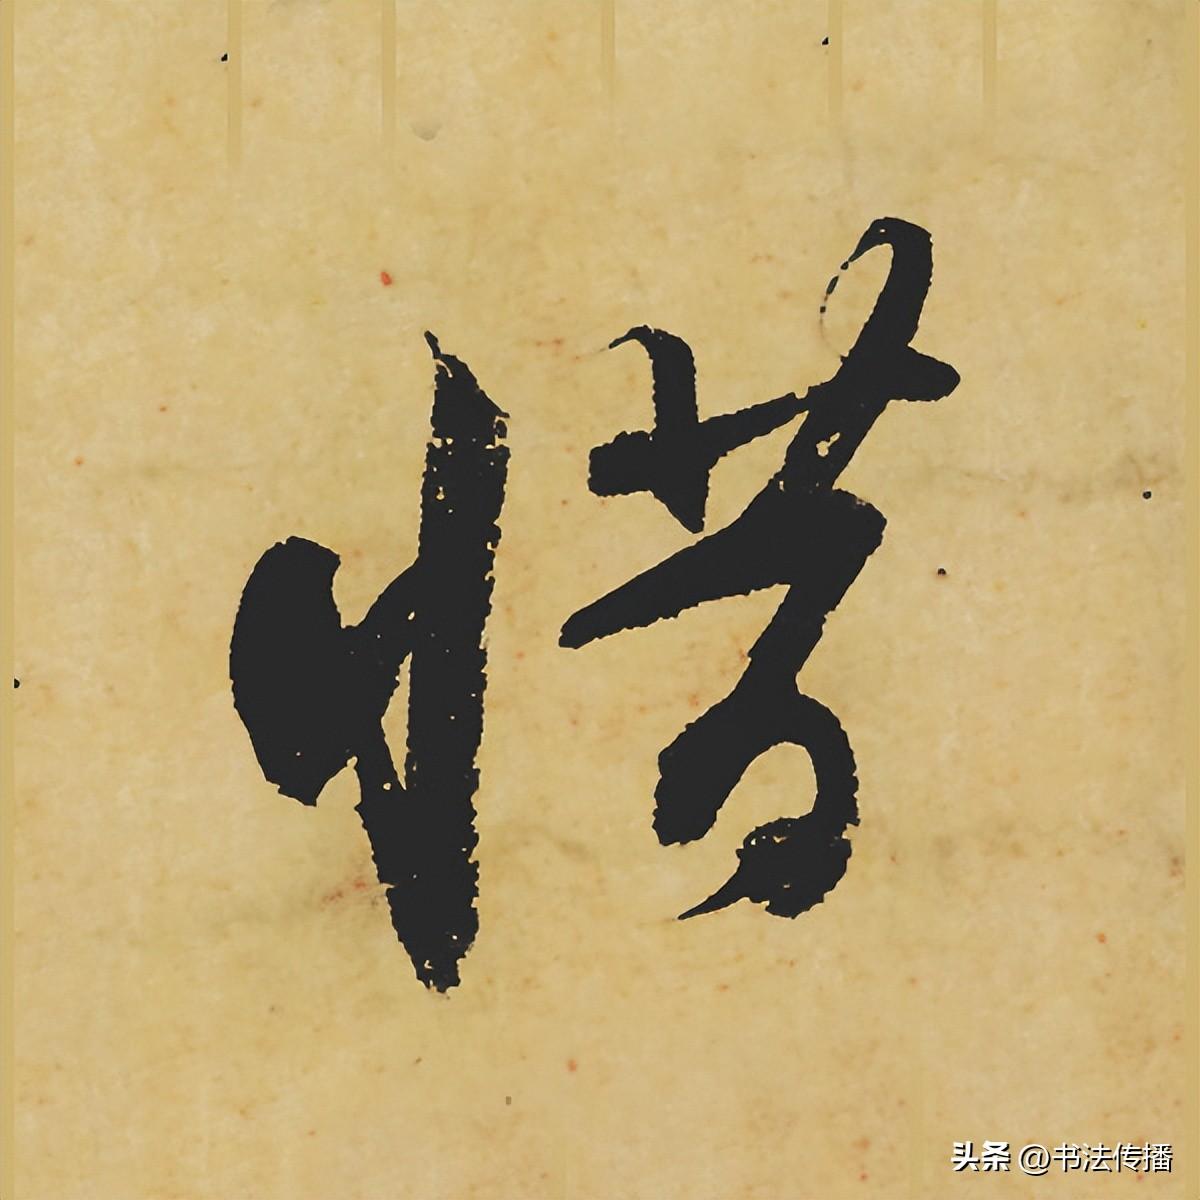 惜
头条 @书法传播